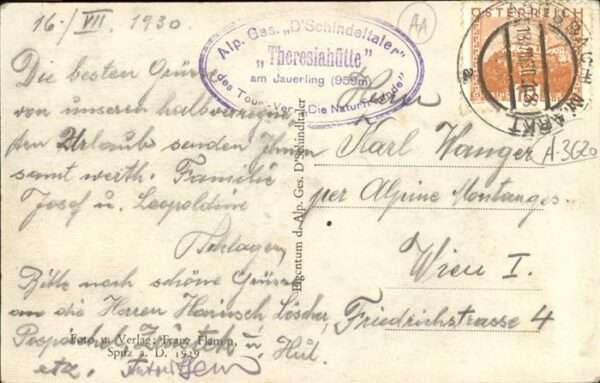 16./VII. 1930.
Alp. Ges. „D'Schindeltaler"
„Theresiahütte"
am Jauerling (959m)
(des Tour. Ver. „Die Naturfreunde"
AA
ÖSTERREICH
MARKT
A-3620
Die besten Grüsse
von unserem halbverregn
ten Urlaube senden Ihnen
samt werth. Familie
Josef u. Leopoldine
Bitte noch schöne Grüsse
an die Herren Heinisch Löscher,
Pospischel, u. Hül.
etz.
Foto u. Verlag: Franz
Spitz a. D. 1929
Eigentum d. Alp. Ges. D'Schindltaler
Herrn
Karl Wanger
per Alpine Montanges.
Wien I.
Friedrichstrasse 4